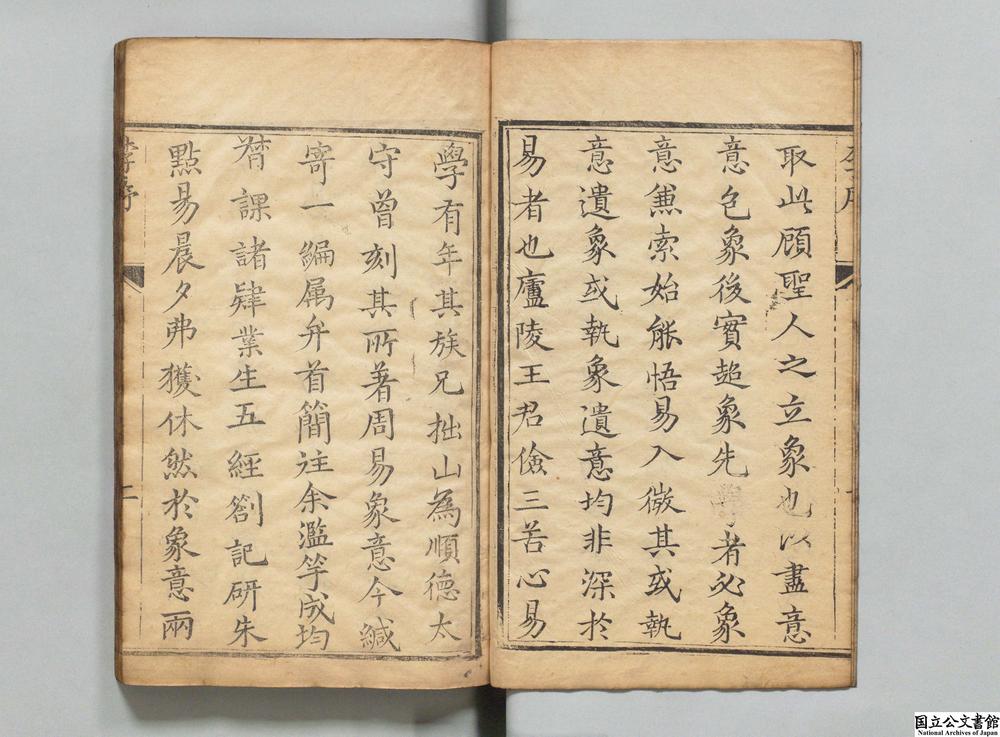 取此顧聖人之立象也以盡意
意包象後實超象先學者必象
意兼索始能悟易入微其或執
意遺象或執象遺意均非深於
易者也廬陵王君儉三苦心易
學有年其族兄拙山為順德太
守曾刻其所著周易象意今緘
寄一編属弁首簡注余濫竽成均
嘗課諸肄業生五經劄記研朱
點易晨夕弗獲休然於象意兩
李序
二
国立公文書館
National Archives of Japan